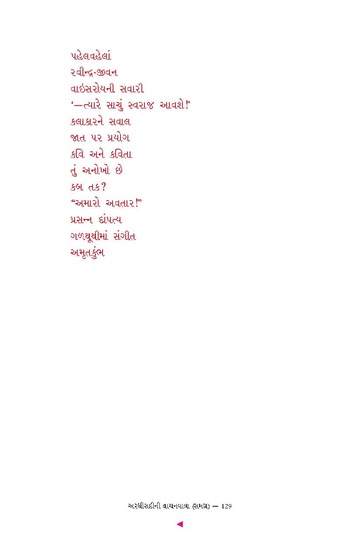 પહેલવહેલાં
રવીન્દ્ર-જીવન
વાઇસરોયની સવારી
‘—ત્યારે સાચું સ્વરાજ આવશે!’
કલાકારને સવાલ
જાત પર પ્રયોગ
કવિ અને કવિતા
તું અનોખો છે
કબ તક?
“અમારો અવતાર!”
પ્રસન્ન દાંપત્ય
ગળથૂથીમાં સંગીત
અમૃતકુંભ
અરધીસદીની વાચનયાત્રા (સમગ્ર) — 129